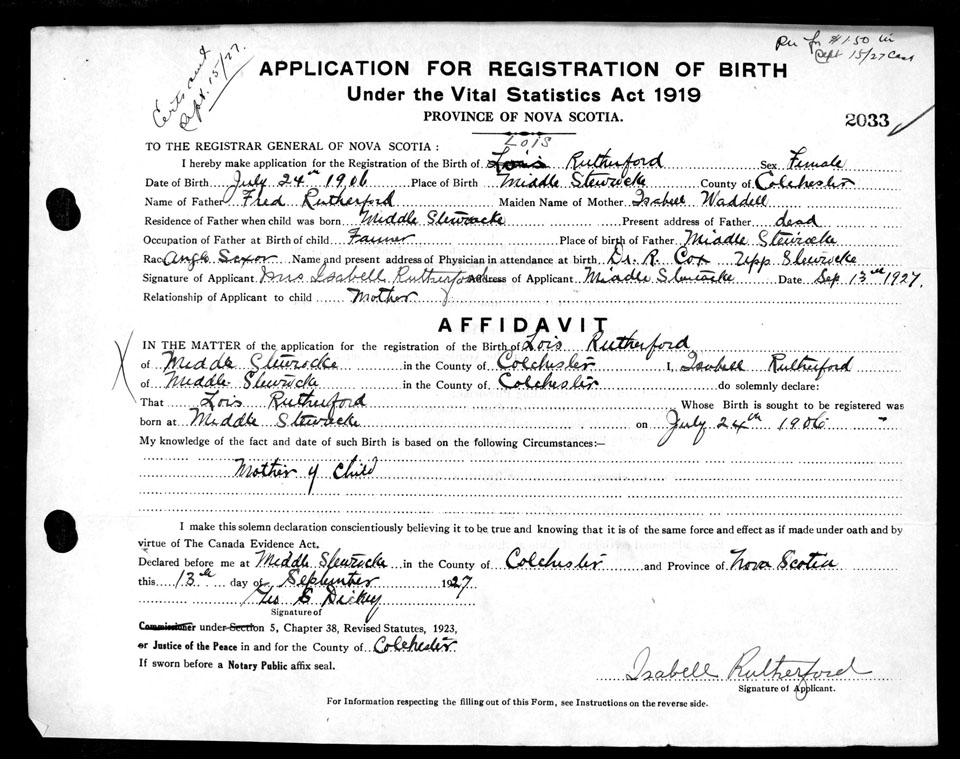 Certs sent
Sept. 15/27.
Rec for $1.50 in
Sept 15/27 Cash
APPLICATION FOR REGISTRATION OF BIRTH
Under the Vital Statistics Act 1919
PROVINCE OF NOVA SCOTIA.
2033
TO THE REGISTRAR GENERAL OF NOVA SCOTIA :
LOIS
I hereby make application for the Registration of the Birth of Lois Rutherford Sex Female
Date of Birth July 24th 1906 Place of Birth Middle Stewiacke County of Colchester
Name of Father Fred Rutherford Maiden Name of Mother Isabell Waddell
Residence of Father when child was born Middle Stewiacke Present address of Father dead
Occupation of Father at Birth of child Farmer Place of birth of Father Middle Stewiacke
Rac Anglo Saxon Name and present address of Physician in attendance at birth Dr. R. Cox Upp Stewiacke
Signature of Applicant Mrs Isabell Rutherford Address of Applicant Middle Stewiacke Date Sep 13th 1927.
Relationship of Applicant to child Mother
AFFIDAVIT
X IN THE MATTER of the application for the registration of the Birth of Lois Rutherford
of Middle Stewiacke in the County of Colchester I, Isabell Rutherford
of Middle Stewiacke in the County of Colchester do solemnly declare:
That Lois Rutherford Whose Birth is sought to be registered was
born at Middle Stewiacke on July 24th 1906
My knowledge of the fact and date of such Birth is based on the following Circumstances:—
Mother of Child
I make this solemn declaration conscientiously believing it to be true and knowing that it is of the same force and effect as if made under oath and by
virtue of The Canada Evidence Act.
Declared before me at Middle Stewiacke in the County of Colchester and Province of Nova Scotia
this 13th day of September 1927
Geo G Dickey
Signature of
Commissioner under Section 5, Chapter 38, Revised Statutes, 1923,
or Justice of the Peace in and for the County of Colchester
If sworn before a Notary Public affix seal.
Isabell Rutherford
Signature of Applicant.
For Information respecting the filling out of this Form, see Instructions on the reverse side.